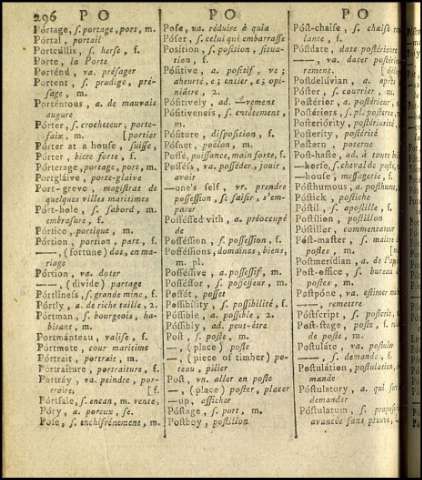 296 P O P O P O
Pórtage, ſ. portage, port, m.
Pórtal, portail
Portcúllis, ſ. herſe, f.
Porte, la Porte
Porténd, va. préſager
Portent, ſ. prodige, pré-
ſage, m.
Porténtous, a. de mauvais
augure
Pórter, ſ. crocheteur, porte-
faix, m. [portier
Porter at a houſe, ſuiſſe,
Porter, biere forte, f.
Pórterage, portage, port, m.
Portglave, porte-glaive
Port-greve, magiſtrat de
quelques villes maritimes
Port-hole, ſ. ſabord, m.
embraſure, f.
Pórtico, portique, m.
Pórtion, portion, part, f.
——, (fortune) dot, en ma-
riage
Pórtion, va. doter
——, (divide) partage
Pórtlineſs, ſ. grande mine, f.
Pórtly, a. de riche taille, 2.
Pórtman, ſ. bourgeois, ha-
bitant, m.
Portmánteau, valiſe, f.
Portmote, cour maritime
Pórtrait, portrait, m.
Pórtraiture, portraiture, f.
Portráy, va. peindre, por-
traire, [f.
Pórtſale, ſ. encan, m. vente,
Póry, a. poreux, ſe.
Poſe, ſ. enchifrénement, m.
Poſe, va. réduire à quia
Póſer, ſ. celui qui embarraſſe
Poſition, ſ. poſition, ſitua-
tion, f.
Póſitive, a. poſitif, ve;
aheurté, e; entier, e; opi-
niâtre, 2.
Póſitively, ad. —vement
Póſitiveneſs, ſ. entêtement,
m.
Póſiture, diſpoſition, f.
Póſnet, poêlon, m.
Poſſe, puiſſance, main forte, f.
Poſſéſs, va. poſſéder, jouir,
avoir
—one's ſelf, vr. prendre
poſſeſſion, ſe ſaiſir, s'em-
parer
Poſſéſſed with, a. préoccupé
de
Poſſéſſion, ſ. poſſeſſion, f.
Poſſéſſions, domaines, biens,
m.
Poſſéſſive, a. poſſeſſif, m.
Poſſéſſor, ſ. poſſeſſeur, m.
Póſſet, poſſet
Poſſibílity, ſ. poſſibilité, f.
Póſſible, a. poſſible, 2.
Póſſibly, ad. peut-être
Poſt, ſ. poſte, m.
—, (place) poſte
—, (piece of timber) po-
teau, pilier
Poſt, vn. aller en poſte
—, (place) poſter, placer
—up, afficher
Póſtage, ſ. port, m.
Poſtboy, poſtillon
Póſt-chaiſe, ſ. chaiſe
lante, f.
Póſtdate, date poſtérieure
——, va. dater poſtérieu-
rement.
Poſtdiluvian, a.
Póſter, ſ. courrier, m.
Poſtérior, a. poſtérieur,
Poſtériors, ſ. pl.
Poſterióríty, poſtériorité
Poſtérity, poſtérité
Póſtern, poterne
Poſt-haſte, ad. à toute
—horſe, cheval de poſte,
—houſe, meſſagerie, f.
Póſthumous, a. poſthume,
Póſtick, poſtiche
Póſtil, ſ. apoſtille, f.
Poſtílion, poſtillon
Póſtiller, commentateur
Póſt-maſter, ſ. maître
poſtes, m.
Poſtmeridian, a. de
Poſt-office, ſ. bureau
poſtes, m.
Poſtpóne, va. eſtimer moins
——, remettre
Póſtſcript, ſ.
Poſt-ſtage, poſte, f.
de poſte, m.
Póſtulate, va.
——, ſ. demande, f.
Poſtulátion, poſtulation,
mande
Póſtulatory, a. qui
demander
Póſtulatum, ſ.
avancée ſans preuve,